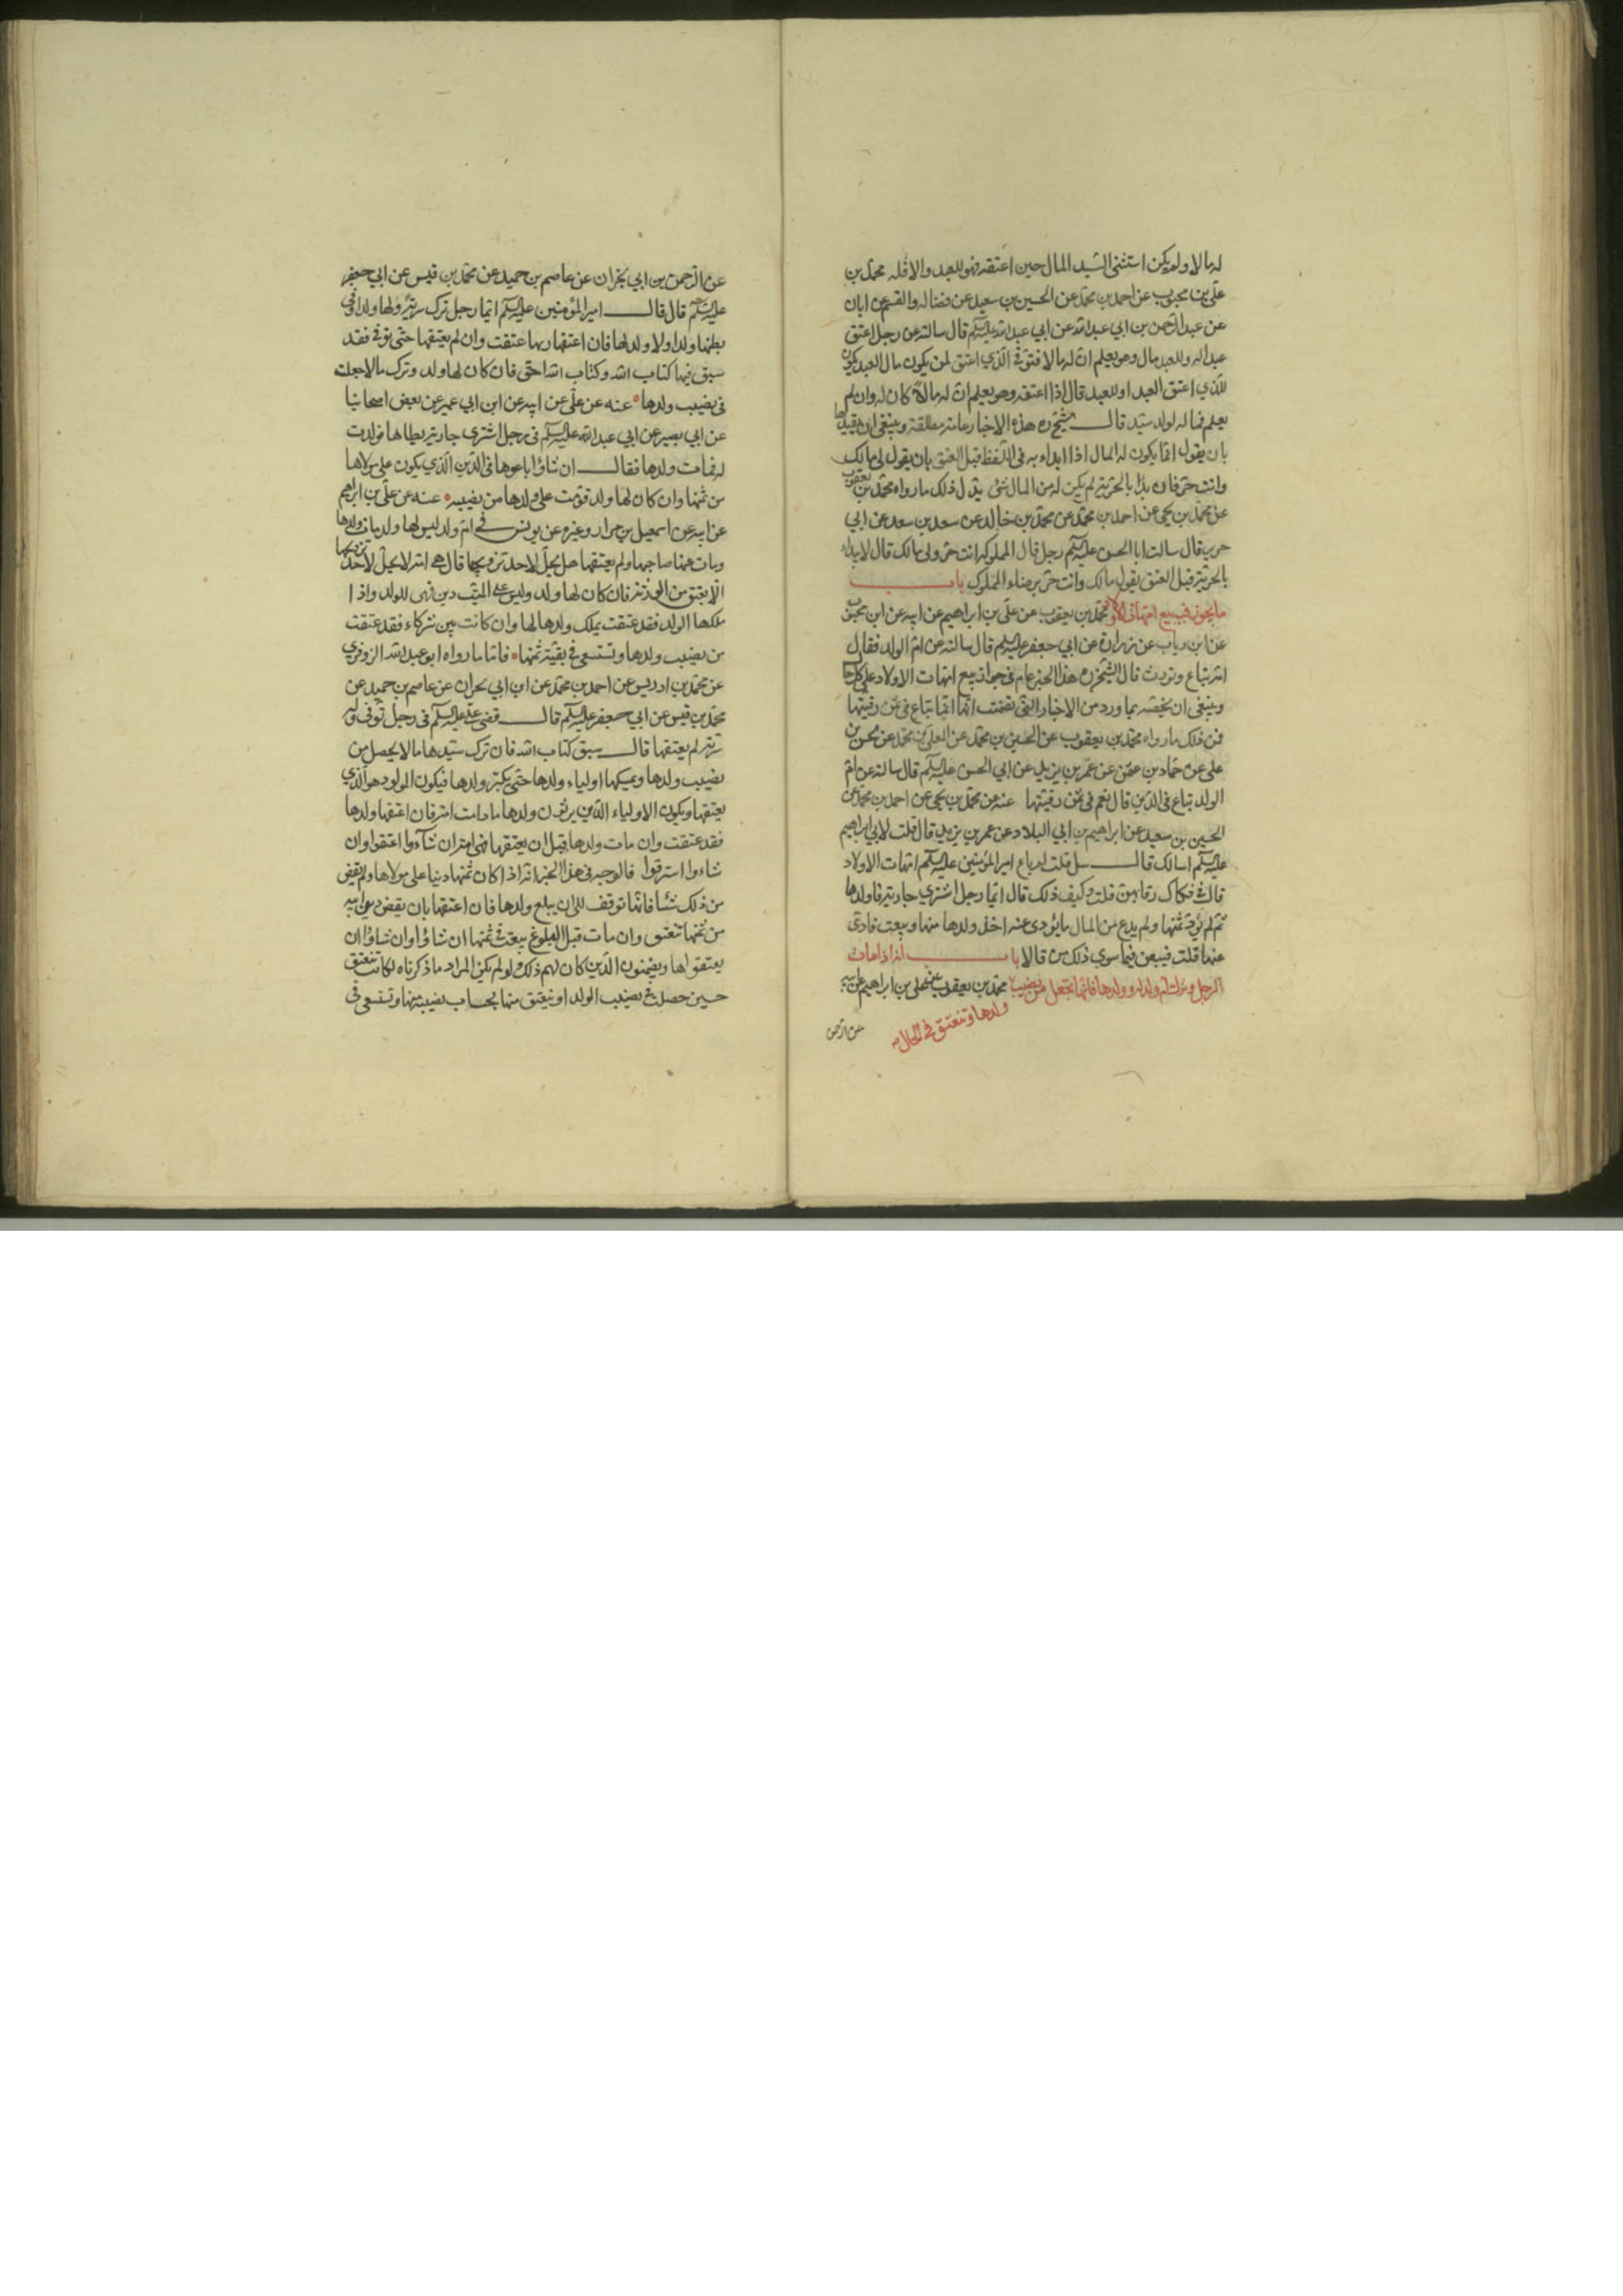 له مالا ولم يكن استثنى السيد المال حين اعتقه فهو للعبد والا فله محمد بن
علي بن محبوب عن احمد بن محمد عن الحسين بن سعيد عن فضاله والقسم عن ابان
عن عبد الرحمن بن ابي عبد الله عن ابي عبد الله عليه السلم قال سالته عن رجل اعتق
عبدا له وللعبد مال وهو يعلم ان له مالا فتوفى الذي اعتق لمن يكون مال العبد يكون
للذي اعتق العبد او للعبد قال اذا اعتقه وهو يعلم ان له مالا كان له وان لم
يعلم فماله لولد سيده قال الشيخ ره هذه الاخبار عامة مطلقة وينبغي ان نقيدها
بان يقول انما يكون له المال اذا ابداء به في اللفظ قبل العتق بان يقول لي مالك
وانت حر فان بدا بالحرية لم يكن له من المال شئ يدل ذلك ما رواه محمد بن يعقوب
عن محمد بن يحيى عن احمد بن محمد عن محمد بن خالد عن سعد بن سعد عن ابي
جرير قال سالت ابا الحسن عليه السلم رجل قال لمملوكه انت حر ولي مالك قال لا يبداء
بالحرية قبل العتق يقول مالك وانت حر برضاء المملوك باب
ما يجوز فيه بيع امهات الاولاد محمد بن يعقوب عن علي بن ابراهيم عن ابيه عن ابن محبوب
عن ابن رياب عن زرارة عن ابي جعفر عليه السلم قال سالته عن ام الولد فقال
امة تباع وتورث قال الشيخ ره هذا الخبر عام في جواز بيع امهات الاولاد على كل حال
وينبغي ان نخصه بما ورد من الاخبار التي تضمنت انها انما تباع في ثمن رقبتها
فمن ذلك ما رواه محمد بن يعقوب عن الحسين بن محمد عن المعلى بن محمد عن الحسن بن
علي عن حماد بن عثمن عن عمر بن يزيد عن ابي الحسن عليه السلم قال سالته عن ام
الولد تباع في الدين قال نعم في ثمن رقبتها عنه عن محمد بن يحيى عن احمد بن محمد عن
الحسين بن سعيد عن ابراهيم بن ابي البلاد عن عمر بن يزيد قال قلت لابي ابراهيم
عليه السلم اسالك قال سل قلت لم باع امير المؤمنين عليه السلم امهات الاولاد
قال في فكاك رقابهن قلت وكيف ذلك قال ايما رجل اشترى جارية فاولدها
ثم لم يؤد ثمنها ولم يدع من المال ما يؤدى عنه اخذ ولدها منها وبيعت فادى
عنها قلت فيبعن فيما سوى ذلك من قال لا باب انه اذا مات
الرجل وترك ام ولد له وولدها فانها تجعل من نصيب محمد بن يعقوب عن علي بن ابراهيم عن ابيه
ولدها وتنعتق في الحال
عن الرحمن
عن الرحمن بن ابي نجران عن عاصم بن حميد عن محمد بن قيس عن ابي جعفر
عليه السلم قال قال امير المؤمنين عليه السلم ايما رجل ترك سرية ولها ولد او في
بطنها ولد او لا ولد لها فان اعتقها ربها عتقت وان لم يعتقها حتى توفى فقد
سبق فيها كتاب الله وكتاب الله احق فان كان لها ولد وترك مالا جعلت
في نصيب ولدها عنه عن علي عن ابيه عن ابن ابي عمير عن بعض اصحابنا
عن ابي بصير عن ابي عبد الله عليه السلم في رجل اشترى جارية يطاها فولدت
له فمات ولدها فقال ان شاؤا باعوها في الدين الذي يكون على مولاها
من ثمنها وان كان لها ولد قومت على ولدها من نصيبه عنه عن علي بن ابراهيم
عن ابيه عن اسمعيل بن مرار وغيره عن يونس في ام ولد ليس لها ولد مات ولدها
ومات عنها صاحبها ولم يعتقها هل يحل لاحد تزويجها قال هي امة لا يحل لاحد تزويجها
الا بعتق من الورثة فان كان لها ولد وليس على الميت دين فهي للولد واذا
ملكها الولد فقد عتقت بملك ولدها لها وان كانت بين شركاء فقد عتقت
من نصيب ولدها وتستسعى في بقية ثمنها فاما ما رواه ابو عبد الله البزوفري
عن محمد بن ادريس عن احمد بن محمد عن ابن ابي نجران عن عاصم بن حميد عن
محمد بن قيس عن ابي جعفر عليه السلم قال قضى علي عليه السلم في رجل توفى وله
سرية لم يعتقها قال سبق كتاب الله فان ترك سيدها مالا يحصل من
نصيب ولدها ويمسكها اولياء ولدها حتى يكبر ولدها فيكون المولود هو الذي
يعتقها ويكون الاولياء الذين يرثون ولدها ما دامت امة فان اعتقها ولدها
فقد عتقت وان مات ولدها قبل ان يعتقها فهي امة ان شاءوا اعتقوا وان
شاءوا استرقوا فالوجه في هذا الخبر انه اذا كان ثمنها دينا على مولاها ولم يقض
من ذلك شئا فانها توقف الى ان يبلغ ولدها فان اعتقها بان يقضى دين ابيه
من ثمنها تنعتق وان مات قبل البلوغ بيعت في ثمنها ان شاؤا وان شاؤا ان
يعتقوها ويضمنون الدين كان لهم ذلك ولو لم يكن المراد ما ذكرناه لكانت تنعتق
حين حصلت في نصيب الولد او ينعتق منها بحساب نصيبه منها وتستسعى في